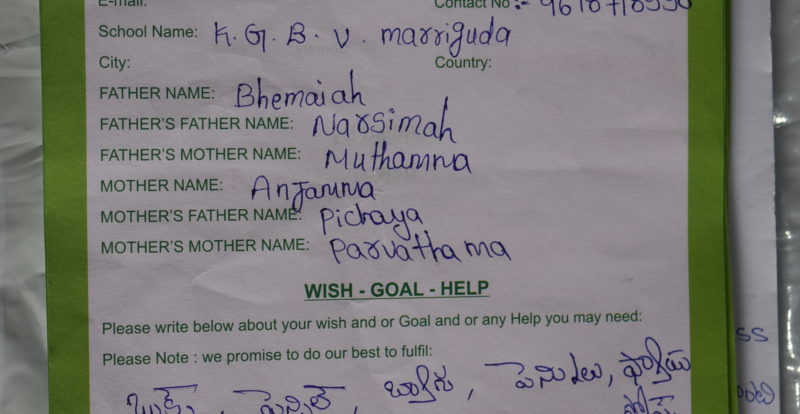 E-mail: Contact No :-
School Name: K. G. B. V. marriguda
City: Country:
FATHER NAME: Bhemaiah
FATHER'S FATHER NAME: Narsimah
FATHER'S MOTHER NAME: Muthamma
MOTHER NAME: Anjamma
MOTHER'S FATHER NAME: Pichaya
MOTHER'S MOTHER NAME: Parvathama
WISH - GOAL - HELP
Please write below about your wish and or Goal and or any Help you may need:
Please Note : we promise to do our best to fulfil:
పెన్సిల్,